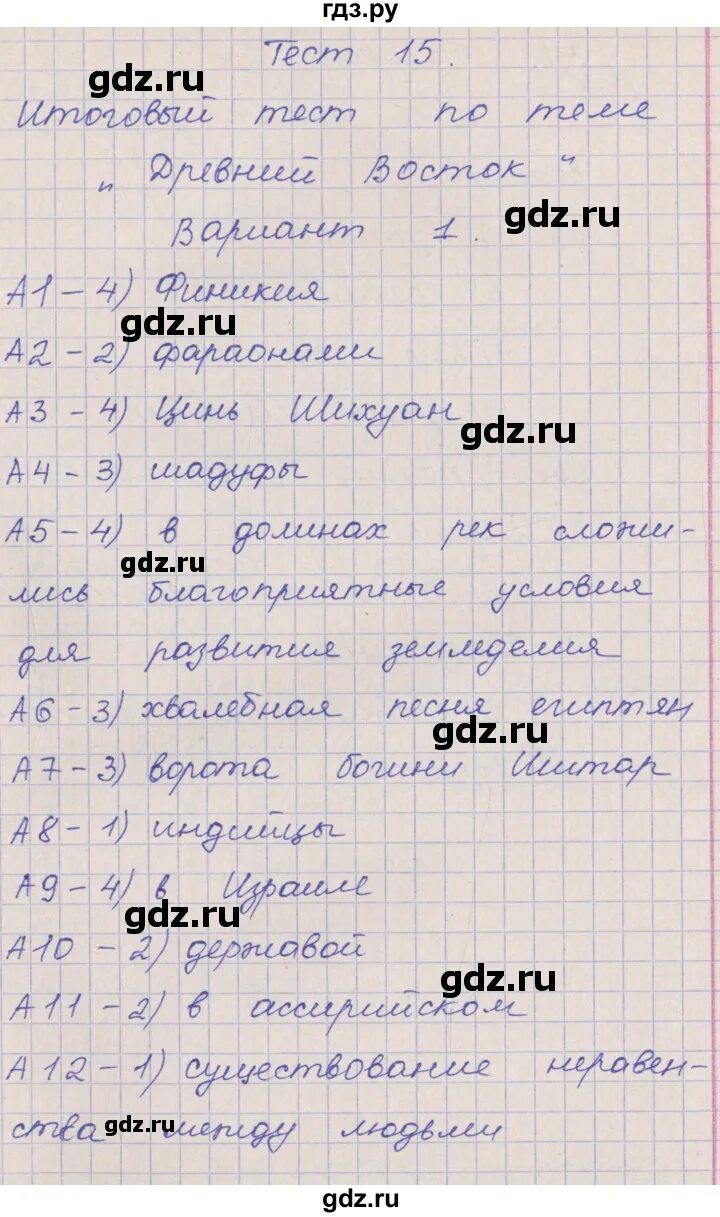 гдз.ру
Тест 15.
gdz.ru
Итоговый тест по теме
„ Древний Восток "
gdz.ru
Вариант 1.
А1 - 4) Финикия
gdz.ru
А2 - 2) фараонами
А3 - 4) Цинь Шихуан
gdz.ru
А4 - 3) шадуфы
А5 - 4) в долинах рек сложи-
gdz.ru
лись благоприятные условия
для развития земледелия
А6 - 3) хвалебная песня египтян
gdz.ru
А7 - 3) ворота богини Иштар
А8 - 1) индийцы
А9 - 4) в Израиле
gdz.ru
А10 - 2) державой
gdz.ru
А11 - 2) в ассирийском
А12 - 1) существование неравен-
gdz.ru
ства между людьми
gdz.ru